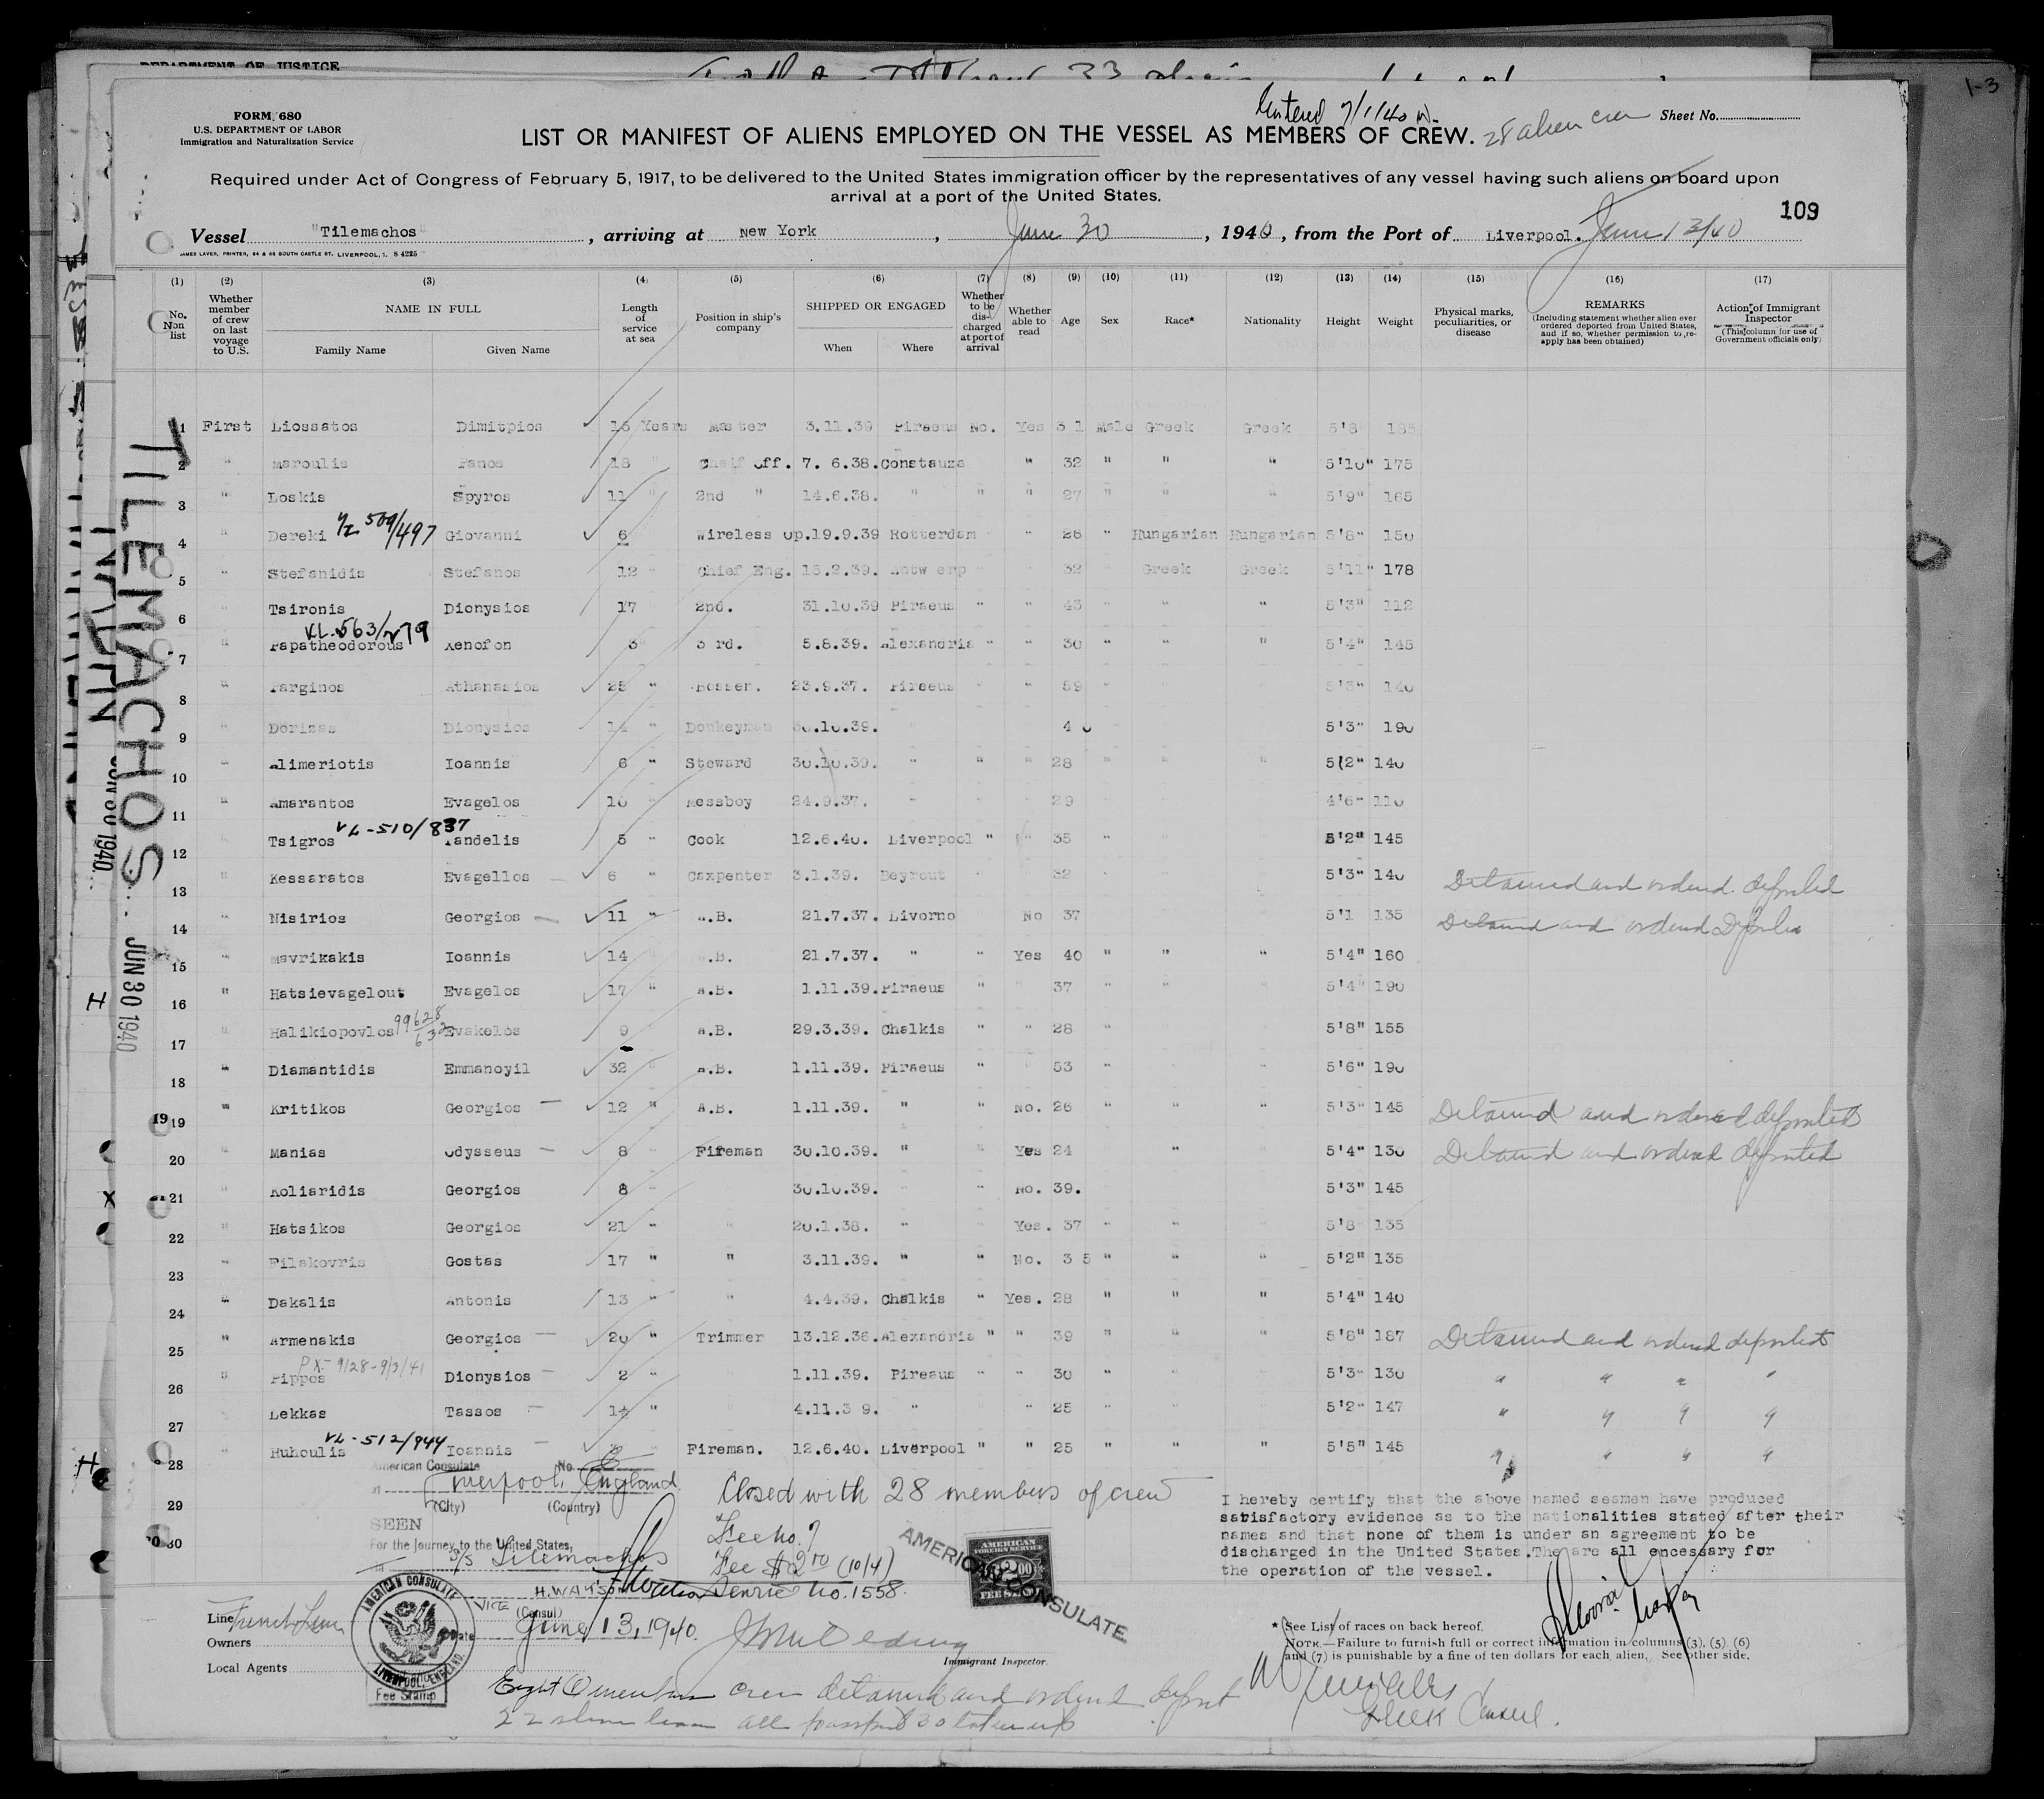 DEPARTMENT OF JUSTICE
1-3
FORM 680
U.S. DEPARTMENT OF LABOR
Immigration and Naturalization Service
Entered 7/1/40
LIST OR MANIFEST OF ALIENS EMPLOYED ON THE VESSEL AS MEMBERS OF CREW.
28 alien crew
Sheet No.
Required under Act of Congress of February 5, 1917, to be delivered to the United States immigration officer by the representatives of any vessel having such aliens on board upon
arrival at a port of the United States.
109
Vessel "Tilemachos", arriving at New York, June 30, 1940, from the Port of Liverpool. June 13/40
JAMES LAVER, PRINTER, 64 & 66 SOUTH CASTLE ST. LIVERPOOL, 1. S 4225
(1) (2) (3) (4) (5) (6) (7) (8) (9) (10) (11) (12) (13) (14) (15) (16) (17)
No. on list
Whether member of crew on last voyage to U.S.
NAME IN FULL
Family Name Given Name
Length of service at sea
Position in ship's company
SHIPPED OR ENGAGED
When Where
Whether to be discharged at port of arrival
Whether able to read
Age Sex Race* Nationality Height Weight
Physical marks, peculiarities, or disease
REMARKS
(Including statement whether alien ever ordered deported from United States, and if so, whether permission to re-apply has been obtained)
Action of Immigrant Inspector
(This column for use of Government officials only)
1 First Liossatos Dimitpios 15 Years Master 3.11.39 Piraeus No. Yes 31 Male Greek Greek 5'8 185
2 " Maroulis Panos 18 " Chaif Off. 7. 6.38. Constauza " 32 " " " 5'10" 175
3 " Loskis Spyros 11 " 2nd " 14.6.38. " " " 27 " " " 5'9" 165
4 " Dereki Giovanni 6 Wireless Op. 19.9.39 Rotterdam " 26 " Hungarian Hungarian 5'8" 150
5 " Stefanidis Stefanos 12 " Chief Eng. 15.2.39. Antw erp " 32 Greek Greek 5'11" 178
6 " Tsironis Dionysios 17 2nd. 31.10.39 Piraeus " " 43 " " " 5'3" 112
VL-563/279
7 " Papatheodorous Xenofon 3 3 rd. 5.8.39. Alexandria " " 30 " " " 5'4" 145
8 " Parginos Athanasios 25 " Bossen. 23.9.37. Pireeus " " 59 " 5'3" 140
9 " Dorizas Dionysios 14 " Donkeyman 30.10.39. 40 5'3" 190
10 " Alimeriotis Ioannis 6 " Steward 30.10.39. " " " 28 " " " 5(2" 140
11 " Amarantos Evagelos 10 " Messboy 24.9.37. " 29 4'6" 110
VL-510/837
12 Tsigros Pandelis 5 " Cook 12.6.40. Liverpool " " 35 " 5'2" 145
13 " Kessaratos Evagellos 6 " Caxpenter 3.1.39. Beyrout 32 5'3" 140 Detained and ordered deported
14 " Nisirios Georgios 11 " A.B. 21.7.37. Livorno No 37 5'1 135 Detained and ordered Deported
15 " Mavrikakis Ioannis 14 " A.B. 21.7.37. " " Yes 40 " " " 5'4" 160
16 " Hatsievagelout Evagelos 17 " A.B. 1.11.39. Piraeus " 37 " " 5'4" 190
17 " Halikiopovlos Evakelos 9 A.B. 29.3.39. Chalkis " " 28 " 5'8" 155
18 " Diamantidis Emmanoyil 32 A.B. 1.11.39. Piraeus " 53 5'6" 190
19 " Kritikos Georgios 12 " A.B. 1.11.39. " " No. 26 " " " 5'3" 145 Detained and ordered deported
20 " Manias Odysseus 8 Fireman 30.10.39. " " Yes 24 " 5'4" 130 Detained and ordered deported
21 " Koliaridis Georgios 8 30.10.39. " No. 39. 5'3" 145
22 " Hatsikos Georgios 21 " " 20.1.38. " Yes. 37 " " " 5'8 135
23 " Pilakovris Gostas 17 " " 3.11.39. " " No. 3 5 " " " 5'2" 135
24 " Dakalis Antonis 13 " " 4.4.39. Chalkis " Yes. 28 " " " 5'4" 140
25 " Armenakis Georgios 20 " Trimmer 13.12.36. Alexandria " " 39 " " " 5'8" 187 Detained and ordered deported
26 " Pippos Dionysios 2 " 1.11.39. Pireaus " " 30 " 5'3" 130 " " " "
27 Lekkas Tassos 14 " 4.11.3 9. " " 25 5'2" 147 " " " "
VL-512/944
28 " Huhoulis Ioannis Fireman. 12.6.40. Liverpool " " 25 " " " 5'5" 145 " " " "
29
30
TILEMACHOS
JUN 30 1940
American Consulate No.
at Liverpool, England
(City) (Country)
SEEN
For the journey to the United States,
S/S Tilemachos
H. WATSON
Vice (Consul)
Date June 13, 1940.
Closed with 28 members of crew
Fee no. 7
Fee $2.00 (10/4)
Service No. 1558.
AMERICAN FOREIGN SERVICE
$2.00
FEE STAMP
AMERICAN CONSULATE
I hereby certify that the above named seamen have produced
satisfactory evidence as to the nationalities stated after their
names and that none of them is under an agreement to be
discharged in the United States. The are all encessary for
the operation of the vessel.
Line
Owners
Local Agents
AMERICAN CONSULATE
LIVERPOOL, ENGLAND.
Fee Stamp
Immigrant Inspector.
* See List of races on back hereof.
NOTE.—Failure to furnish full or correct information in columns (3), (5), (6)
and (7) is punishable by a fine of ten dollars for each alien. See other side.
Greek Consul.
Eight members crew detained and ordered deport